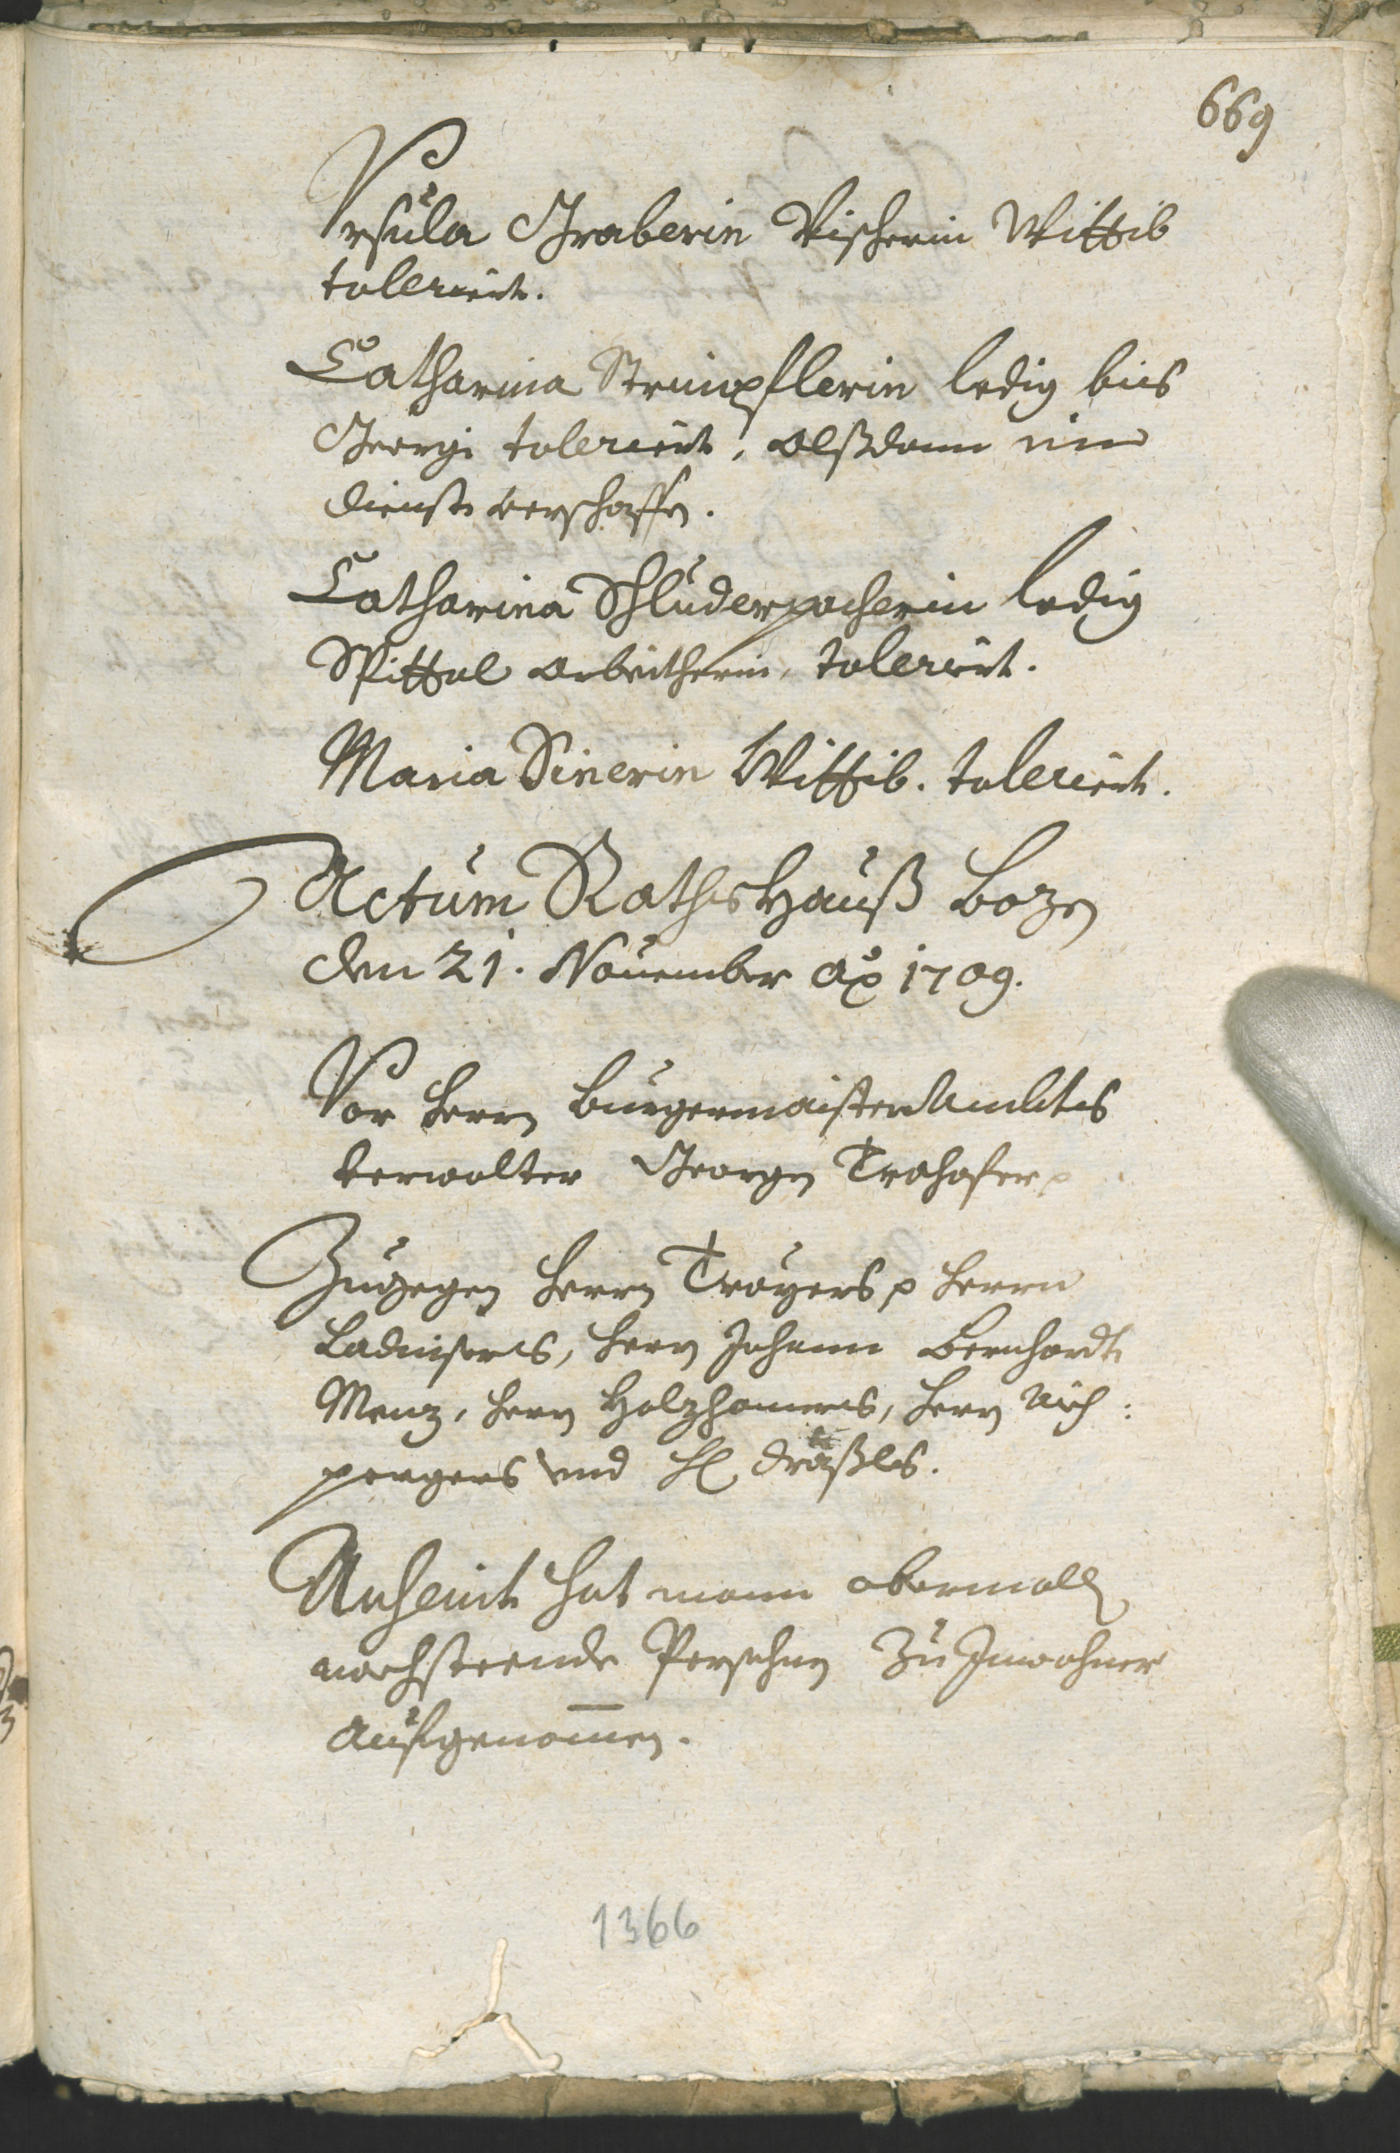 669
Ursula Graberin Vischerin Wittib
toleriert.
Catharina Strimpflerin ledig bis
Georgi toleriert, alßdann in
dienst verschaffen.
Catharina Schluderpacherin ledig
Spittal arbeitherin, toleriert.
Maria Sinerin Wittib. toleriert.
Actum Rathshauß Bozen
den 21. November ao 1709.
Vor herrn Burgermaister Ambts
verwalter Georgen Trahofer
Zugegen herrn Troyers, herrn
Ladinsers, herrn Johann Bernhardt
Menz, herrn Holzhamers, herrn Aich:
pergers und H
Anheint hat mann abermall
nachsteende Persohnen zu Inwohner
aufgenomen.
1366